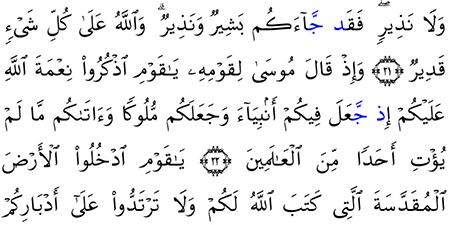 وَلَا نَذِيرٖۖ فَقَد جَّآءَكُم بَشِيرٞ وَنَذِيرٞۗ وَٱللَّهُ عَلَىٰ كُلِّ شَيۡءٖ
قَدِيرٞ ٢١ وَإِذۡ قَالَ مُوسَىٰ لِقَوۡمِهِۦ يَٰقَوۡمِ ٱذۡكُرُواْ نِعۡمَةَ ٱللَّهِ
عَلَيۡكُمۡ إِذ جَّعَلَ فِيكُمۡ أَنۢبِيَآءَ وَجَعَلَكُم مُّلُوكٗا وَءَاتَىٰكُم مَّا لَمۡ
يُؤۡتِ أَحَدٗا مِّنَ ٱلۡعَٰلَمِينَ ٢٢ يَٰقَوۡمِ ٱدۡخُلُواْ ٱلۡأَرۡضَ
ٱلۡمُقَدَّسَةَ ٱلَّتِي كَتَبَ ٱللَّهُ لَكُمۡ وَلَا تَرۡتَدُّواْ عَلَىٰٓ أَدۡبَارِكُمۡ